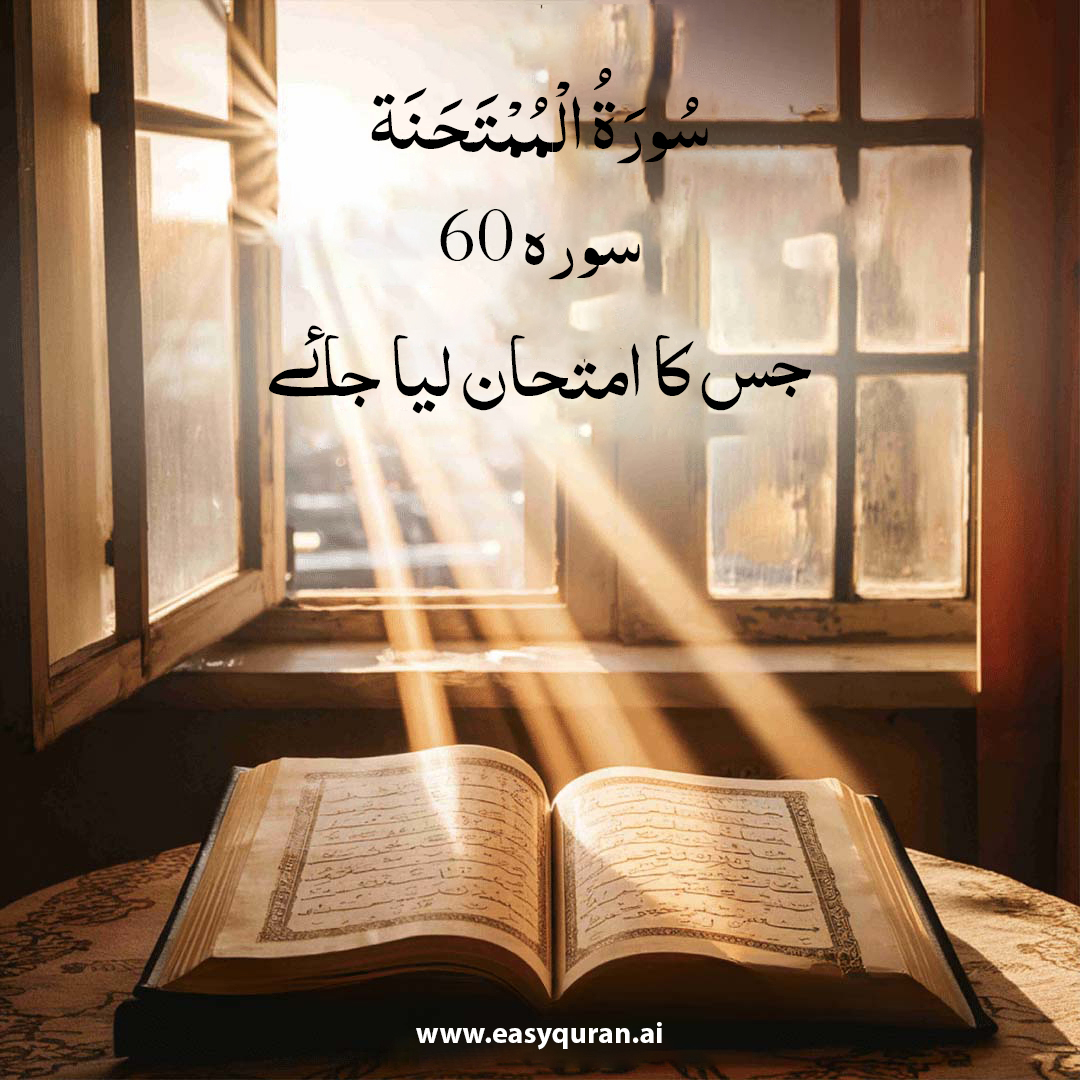 سُورَةُ الْمُمْتَحَنَة
سورہ 60
جس کا امتحان لیا جائے
www.easyquran.ai